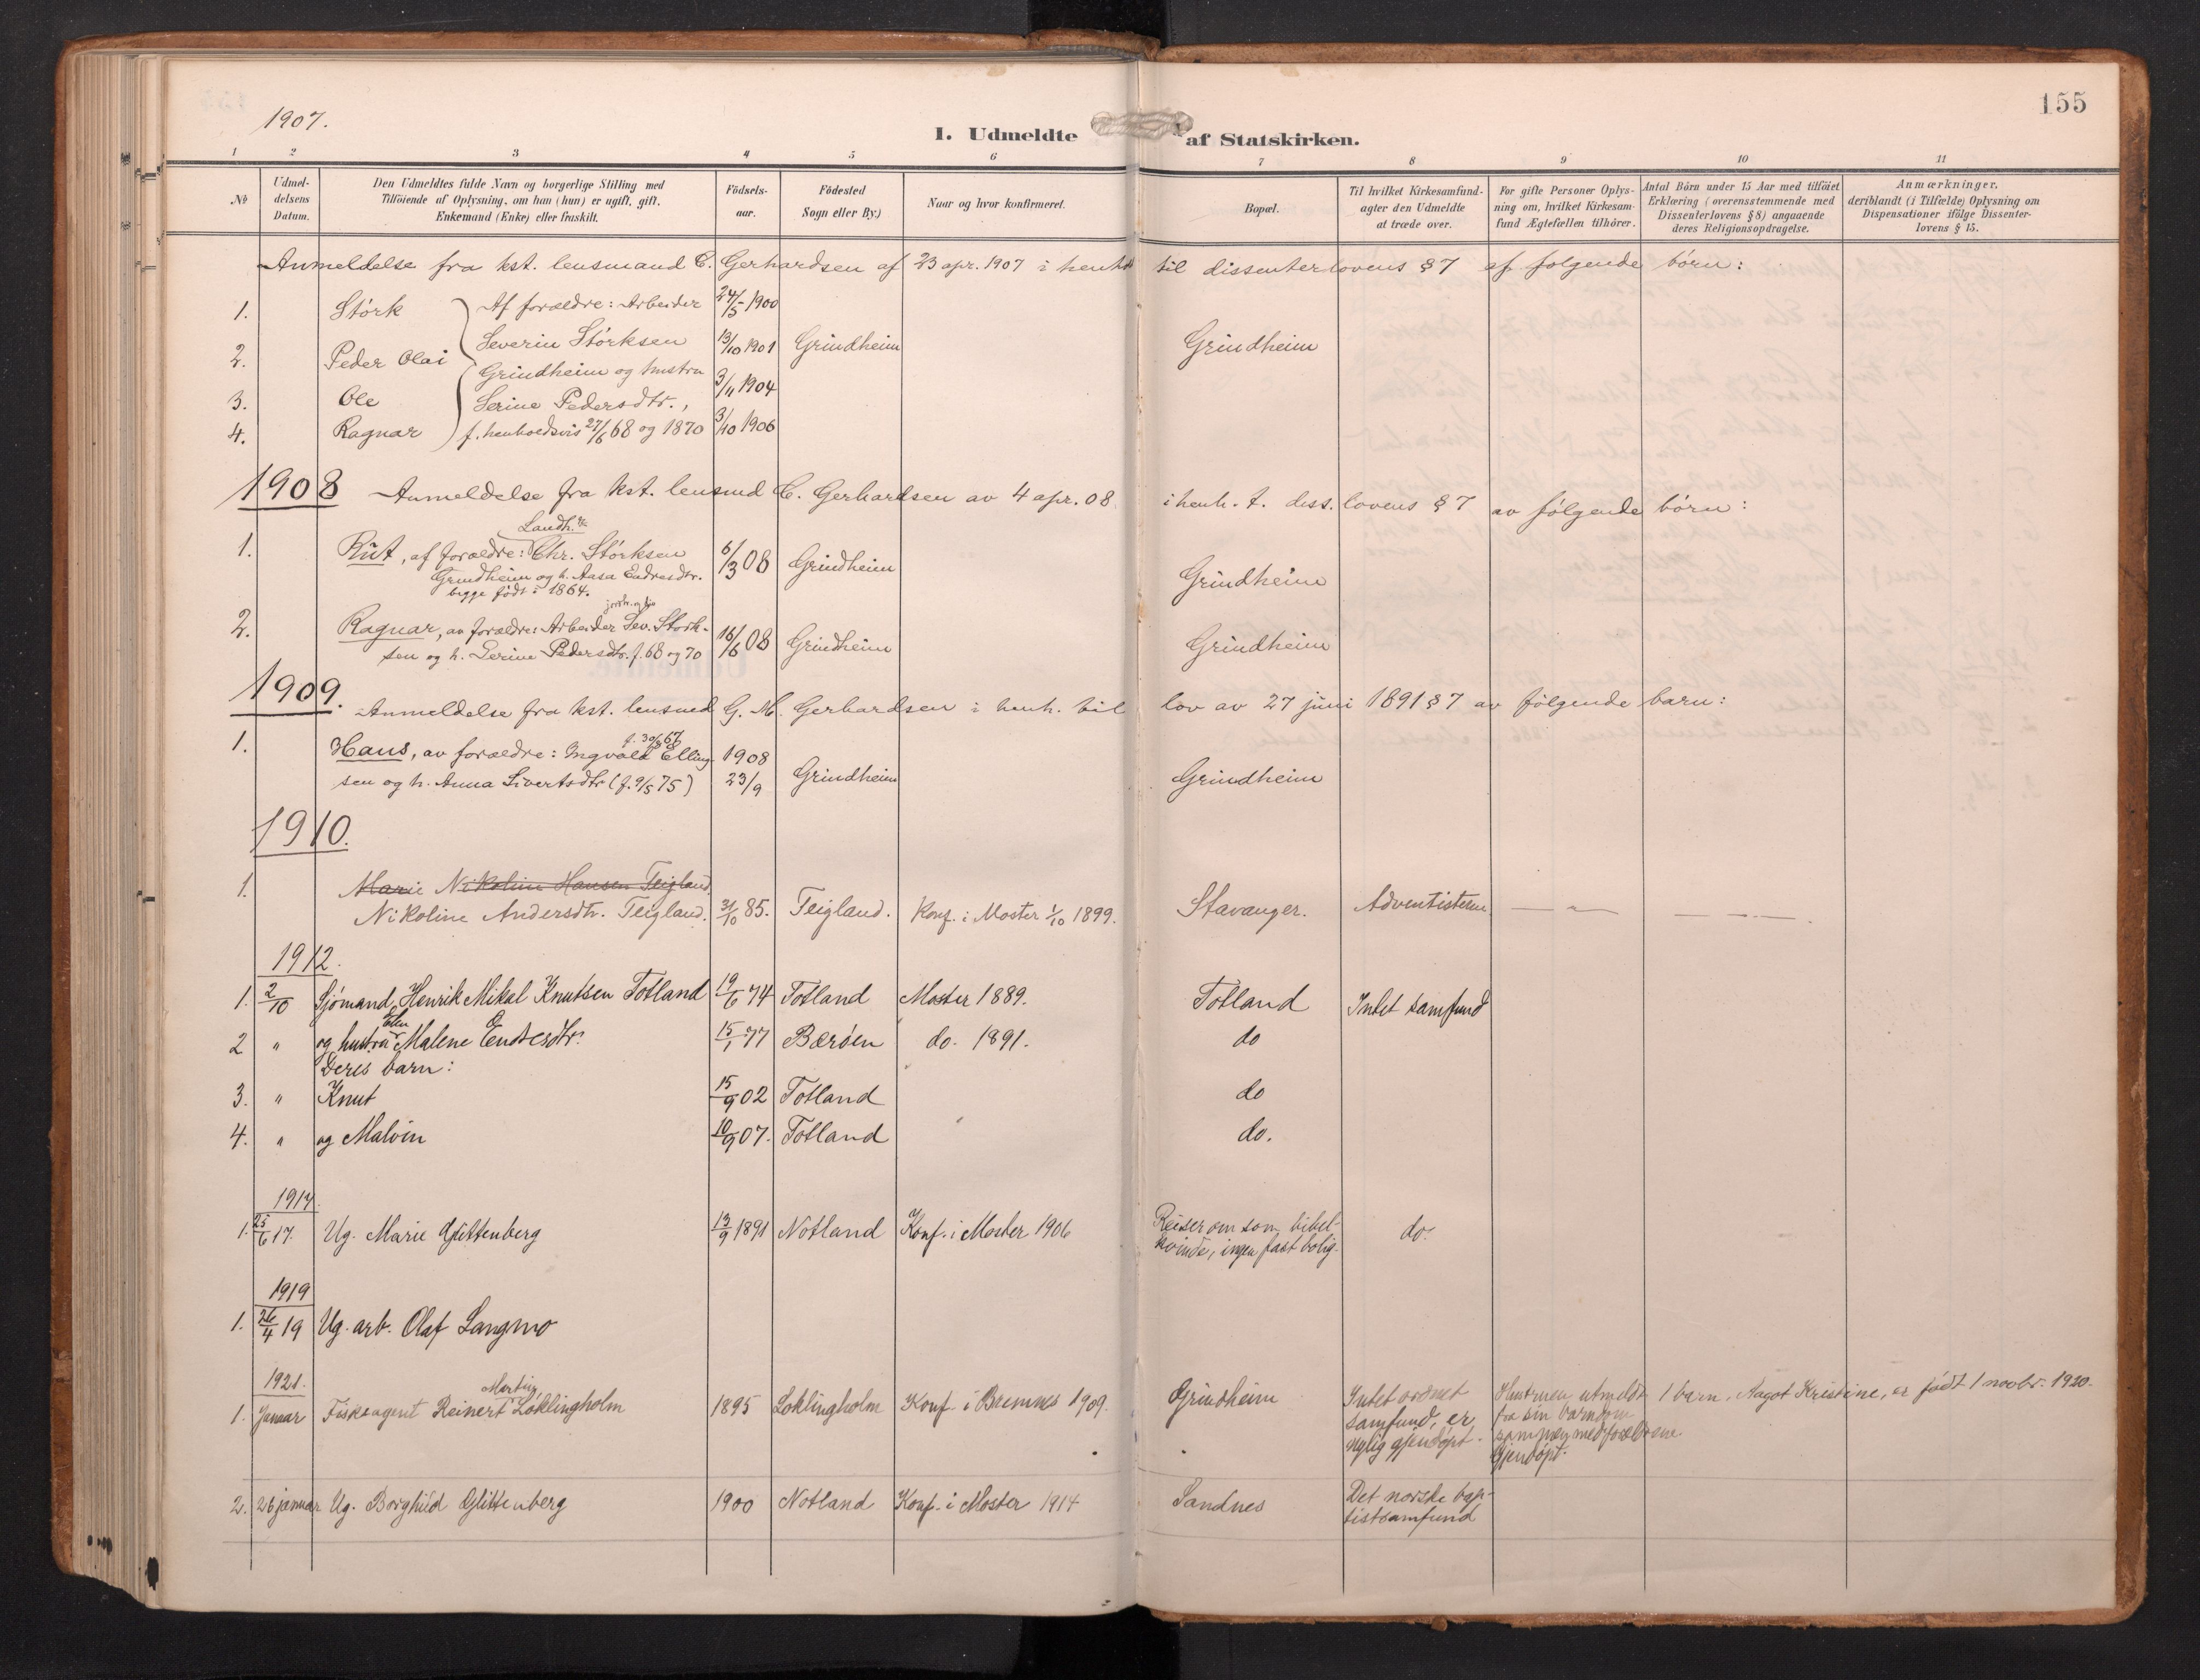 155
1907.
I. Udmeldte af Statskirken.
1 2 3 4 5 6 7 8 9 10 11
No
Udmeldelsens Datum.
Den Udmeldtes fulde Navn og borgerlige Stilling med
Tilföiende af Oplysning, om han (hun) er ugift, gift,
Enkemand (Enke) eller fraskilt.
Födsels-
aar.
Födested
Sogn eller By.)
Naar og hvor konfirmeret.
Bopæl.
Til hvilket Kirkesamfund-
agter den Udmeldte
at træde over.
For gifte Personer Oplys-
ning om, hvilket Kirkesam-
fund Ægtefællen tilhörer.
Antal Börn under 15 Aar med tilföiet
Erklæring (overensstemmende med
Dissenterlovens § 8) angaaende
deres Religionsopdragelse.
Anmærkninger,
deriblandt (i Tilfælde) Oplysning om
Dispensationer ifölge Dissenter-
lovens § 15.
Anmeldelse fra kst. lensmand C. Gerhardsen af 23 apr. 1907 i henh til dissenterlovens § 7 af følgende børn:
1. Størk Af forældre: Arbeider 24/5 1900
2. Peder Olai Severin Størksen 13/10 1901 Grindheim Grindheim
Grindheim og hustru
3. Ole Serine Pedersdtr., 3/11 1904
4. Ragnar f. henholdsvis 27/6 68 og 1870 3/10 1906
1908 Anmeldelse fra kst. lensmd C. Gerhardsen av 4 apr. 08 i henh. t. diss. lovens § 7 av følgende børn:
Landh.
1. Rut, af forældre: Chr. Størksen 6/3 08 Grindheim Grindheim
Grindheim og h. Aasa Endresdtr.
begge født i 1864.
2. Ragnar, av forældre: Arbeider Sev. Størk- 16/6 08 Grindheim Grindheim
sen og h. Serine Pedersdtr. f. 68 og 70
1909.
Anmeldelse fra kst. lensmd G. M. Gerhardsen i henh. til lov av 27 juni 1891 § 7 av følgende barn:
f. 30/8 67
1. Hans, av forældre: Ingvald Elling- 1908
sen og h. Anna Sivertsdtr (f. 9/5 75) 23/9 Grindheim Grindheim
1910.
1. Marie Nikoline Hansen Teigland
Nikoline Andersdtr. Teigland. 31/10 85. Teigland. Konf. i Moster 1/10 1899. Stavanger. Adventisterne
1912.
1. 2/10 Sjømand Henrik Mikal Knutsen Totland 19/6 74 Totland Moster 1889. Totland Intet samfund
Elen
2 " og hustru Malene Endresdtr. 15/1 77 Børøen do. 1891. do
Deres barn:
3. " Knut 15/9 02 Totland do
4. " og Malvin 10/9 07. Totland do.
1917.
1. 25/6 17. Ug. Marie Glittenberg 13/9 1891 Notland Konf. i Moster 1906 Reiser om som bibel- do.
kvinde, ingen fast bolig.
1919
1. 26/4 19 Ug. arb. Olaf Langmo
1921.
Martin
1. Januar Fiskeagent Reinert Løklingholm 1895 Løklingholm Konf. i Bremnes 1909. Grindheim Intet ordnet Hustruen utmeldt 1 barn, Aagot Kristine, er født 1 novbr. 1920.
samfund, er fra sin barndom
nylig gjendøpt. sammen med forældrene
Gjendøpt.
2. 26 januar Ug. Borghild Glittenberg 1900 Notland Konf. i Moster 1914 Sandnes Det norske bap-
tistsamfund